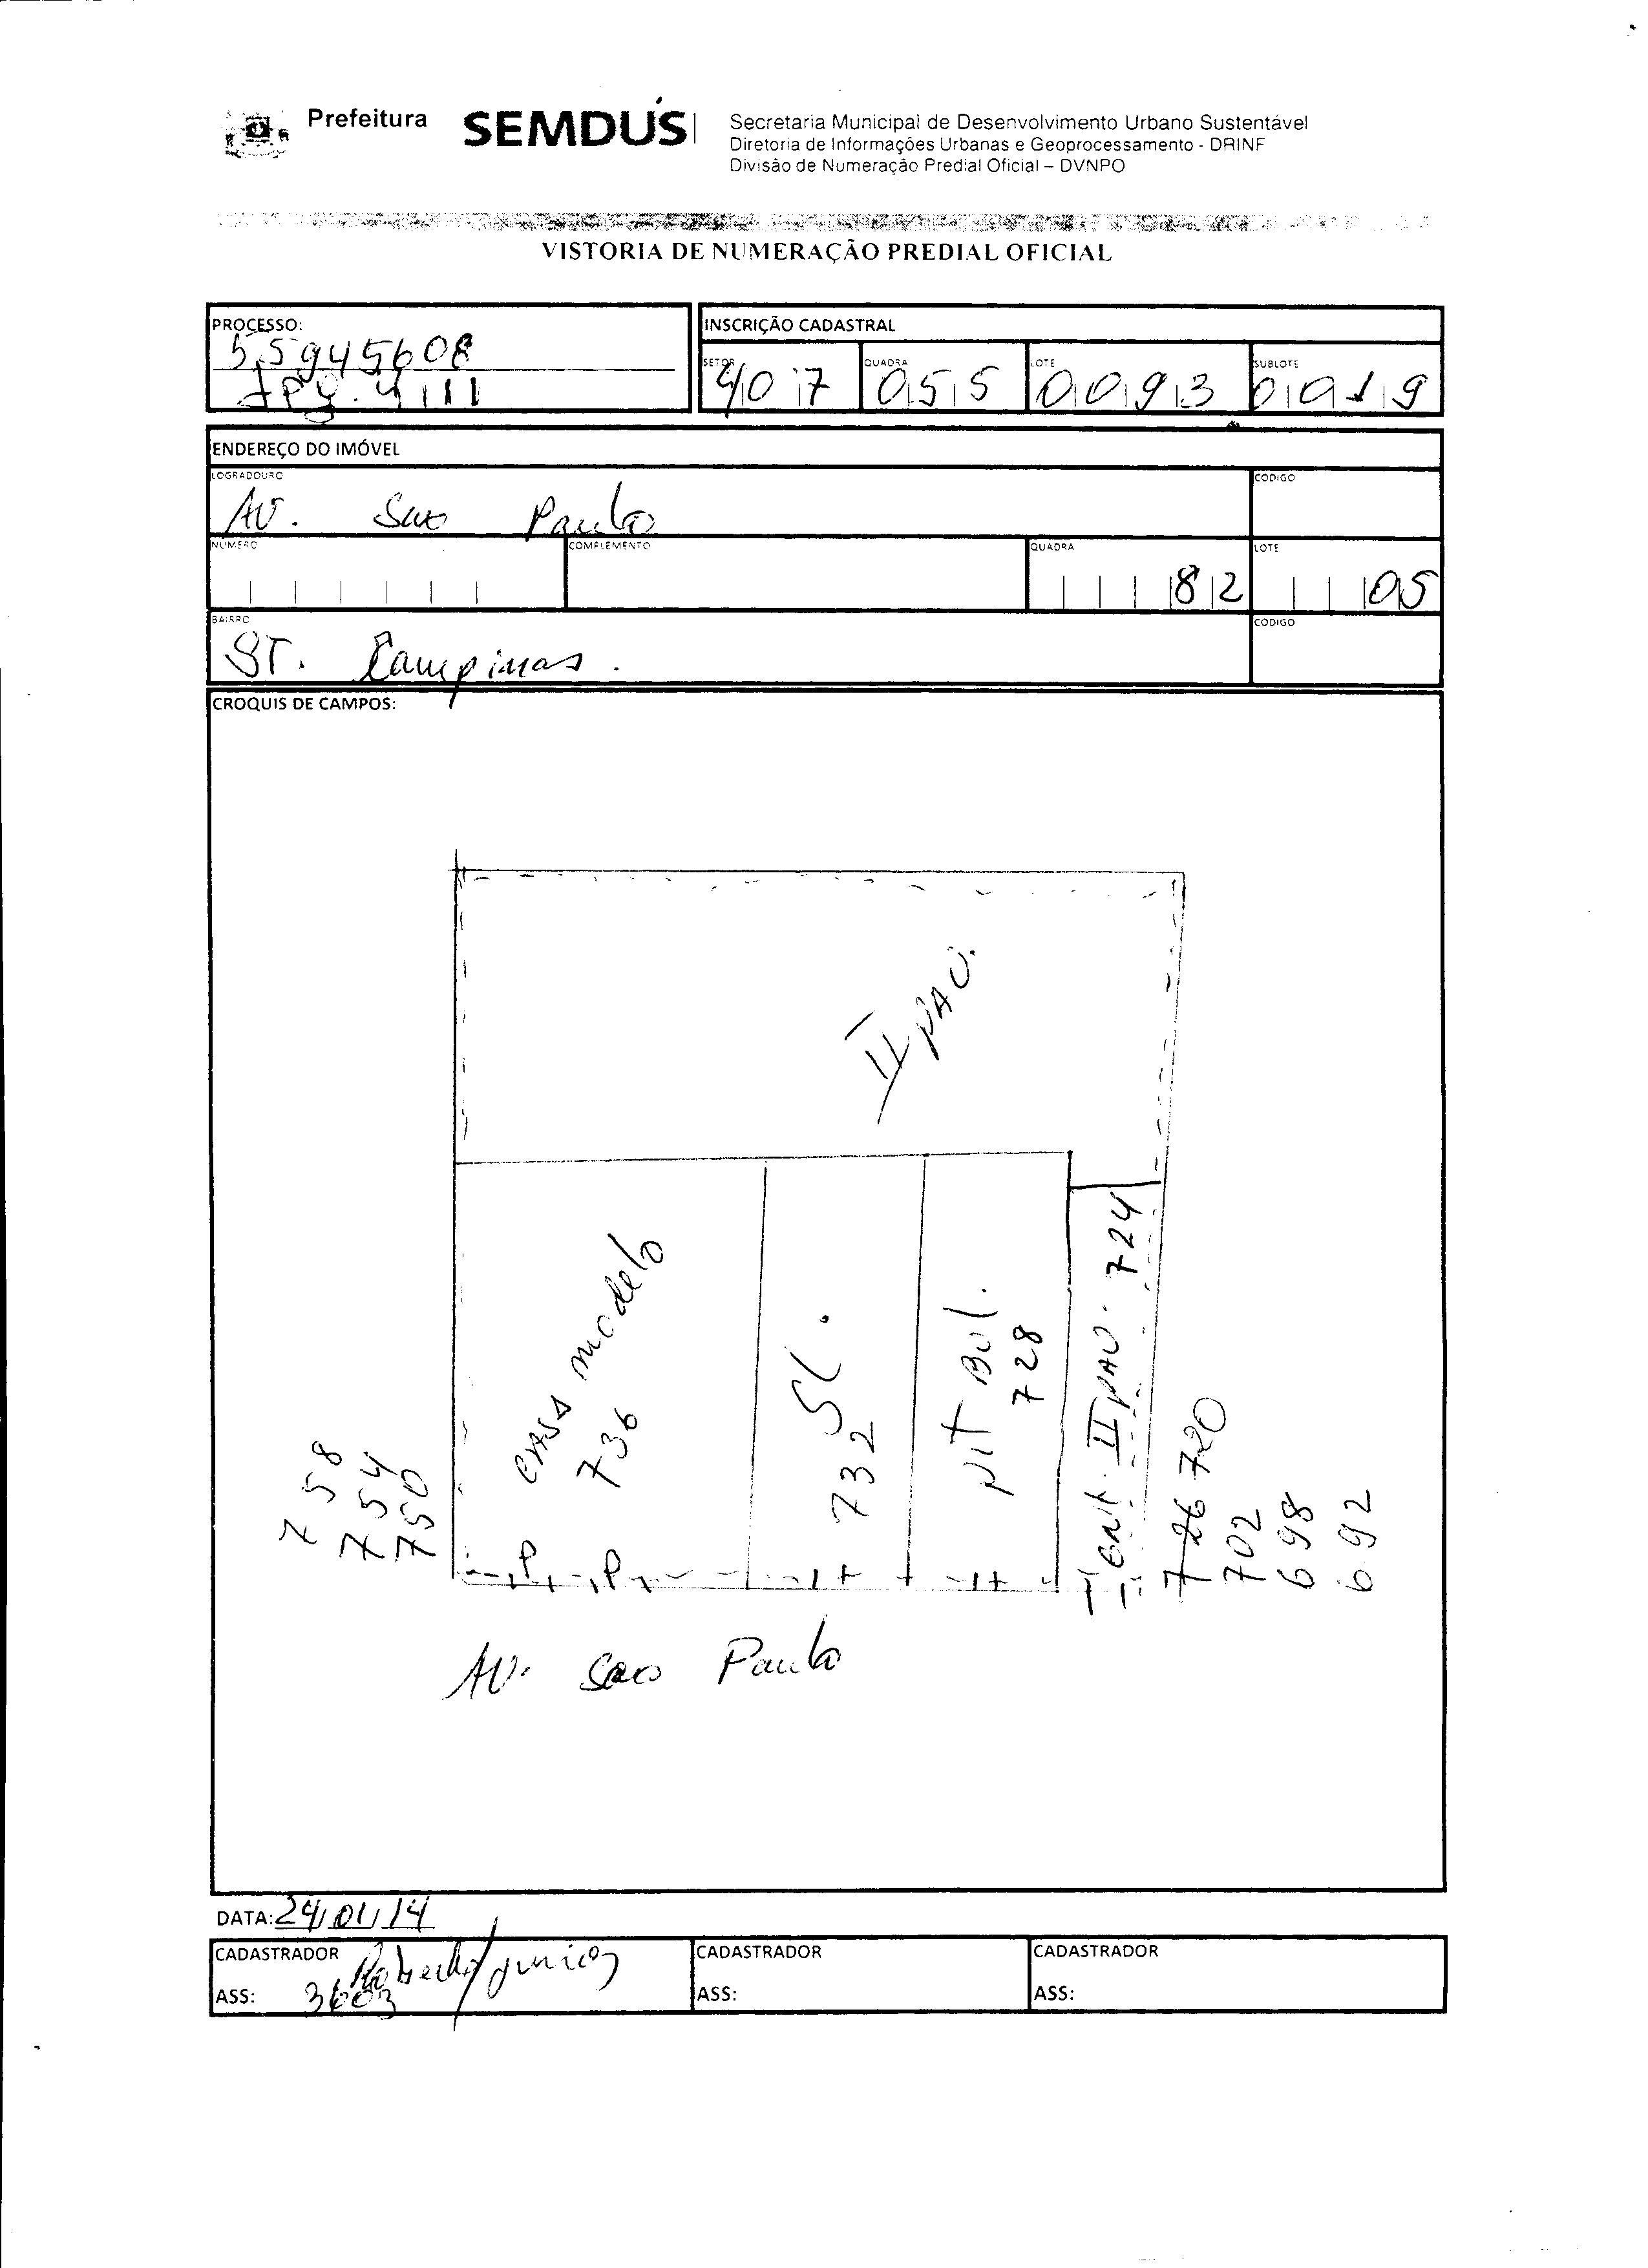 Prefeitura
SEMDUS
Secretaria Municipal de Desenvolvimento Urbano Sustentável
Diretoria de Informações Urbanas e Geoprocessamento - DRINF
Divisão de Numeração Predial Oficial – DVNPO
VISTORIA DE NUMERAÇÃO PREDIAL OFICIAL
PROCESSO:
55945608
INSCRIÇÃO CADASTRAL
SETOR QUADRA LOTE SUBLOTE
407 055 0093 0019
ENDEREÇO DO IMÓVEL
LOGRADOURO CODIGO
AV. Sao Paulo
NUMERO COMPLEMENTO QUADRA LOTE
82 05
BAIRRO CODIGO
ST. Campinas.
CROQUIS DE CAMPOS:
II PAV.
casa modelo
736
SL.
732
pit Bul.
728
ent. II PAV. 724
758
754
750
726 720
702
698
692
AV. Sao Paulo
DATA: 24/01/14
CADASTRADOR Roberto/Junior
ASS: 3603
CADASTRADOR
ASS:
CADASTRADOR
ASS: